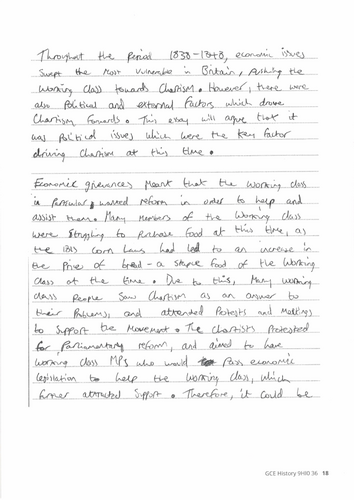 Throughout the period 1838-1848, economic issues
swept the most vulnerable in Britain, pushing the
working class towards Chartism. However, there were
also Political and external factors which drove
Chartism forwards. This essay will argue that it
was Political issues which were the key factor
driving Chartism at this time.
Economic grievances meant that the working class
in particular wanted reform in order to help and
assist them. Many members of the working class
were struggling to purchase food at this time, as
the 1815 corn laws had led to an increase in
the price of bread - a staple food of the working
class at the time. Due to this, many working
class people saw Chartism as an answer to
their Problems, and attended Protests and meetings
to support the movement. The chartists Protested
for Parliamentary reform, and aimed to have
working class MPs who would pass economic
legislation to help the working class, which
further attracted support. Therefore, it could be
GCE History 9HI0 36 18